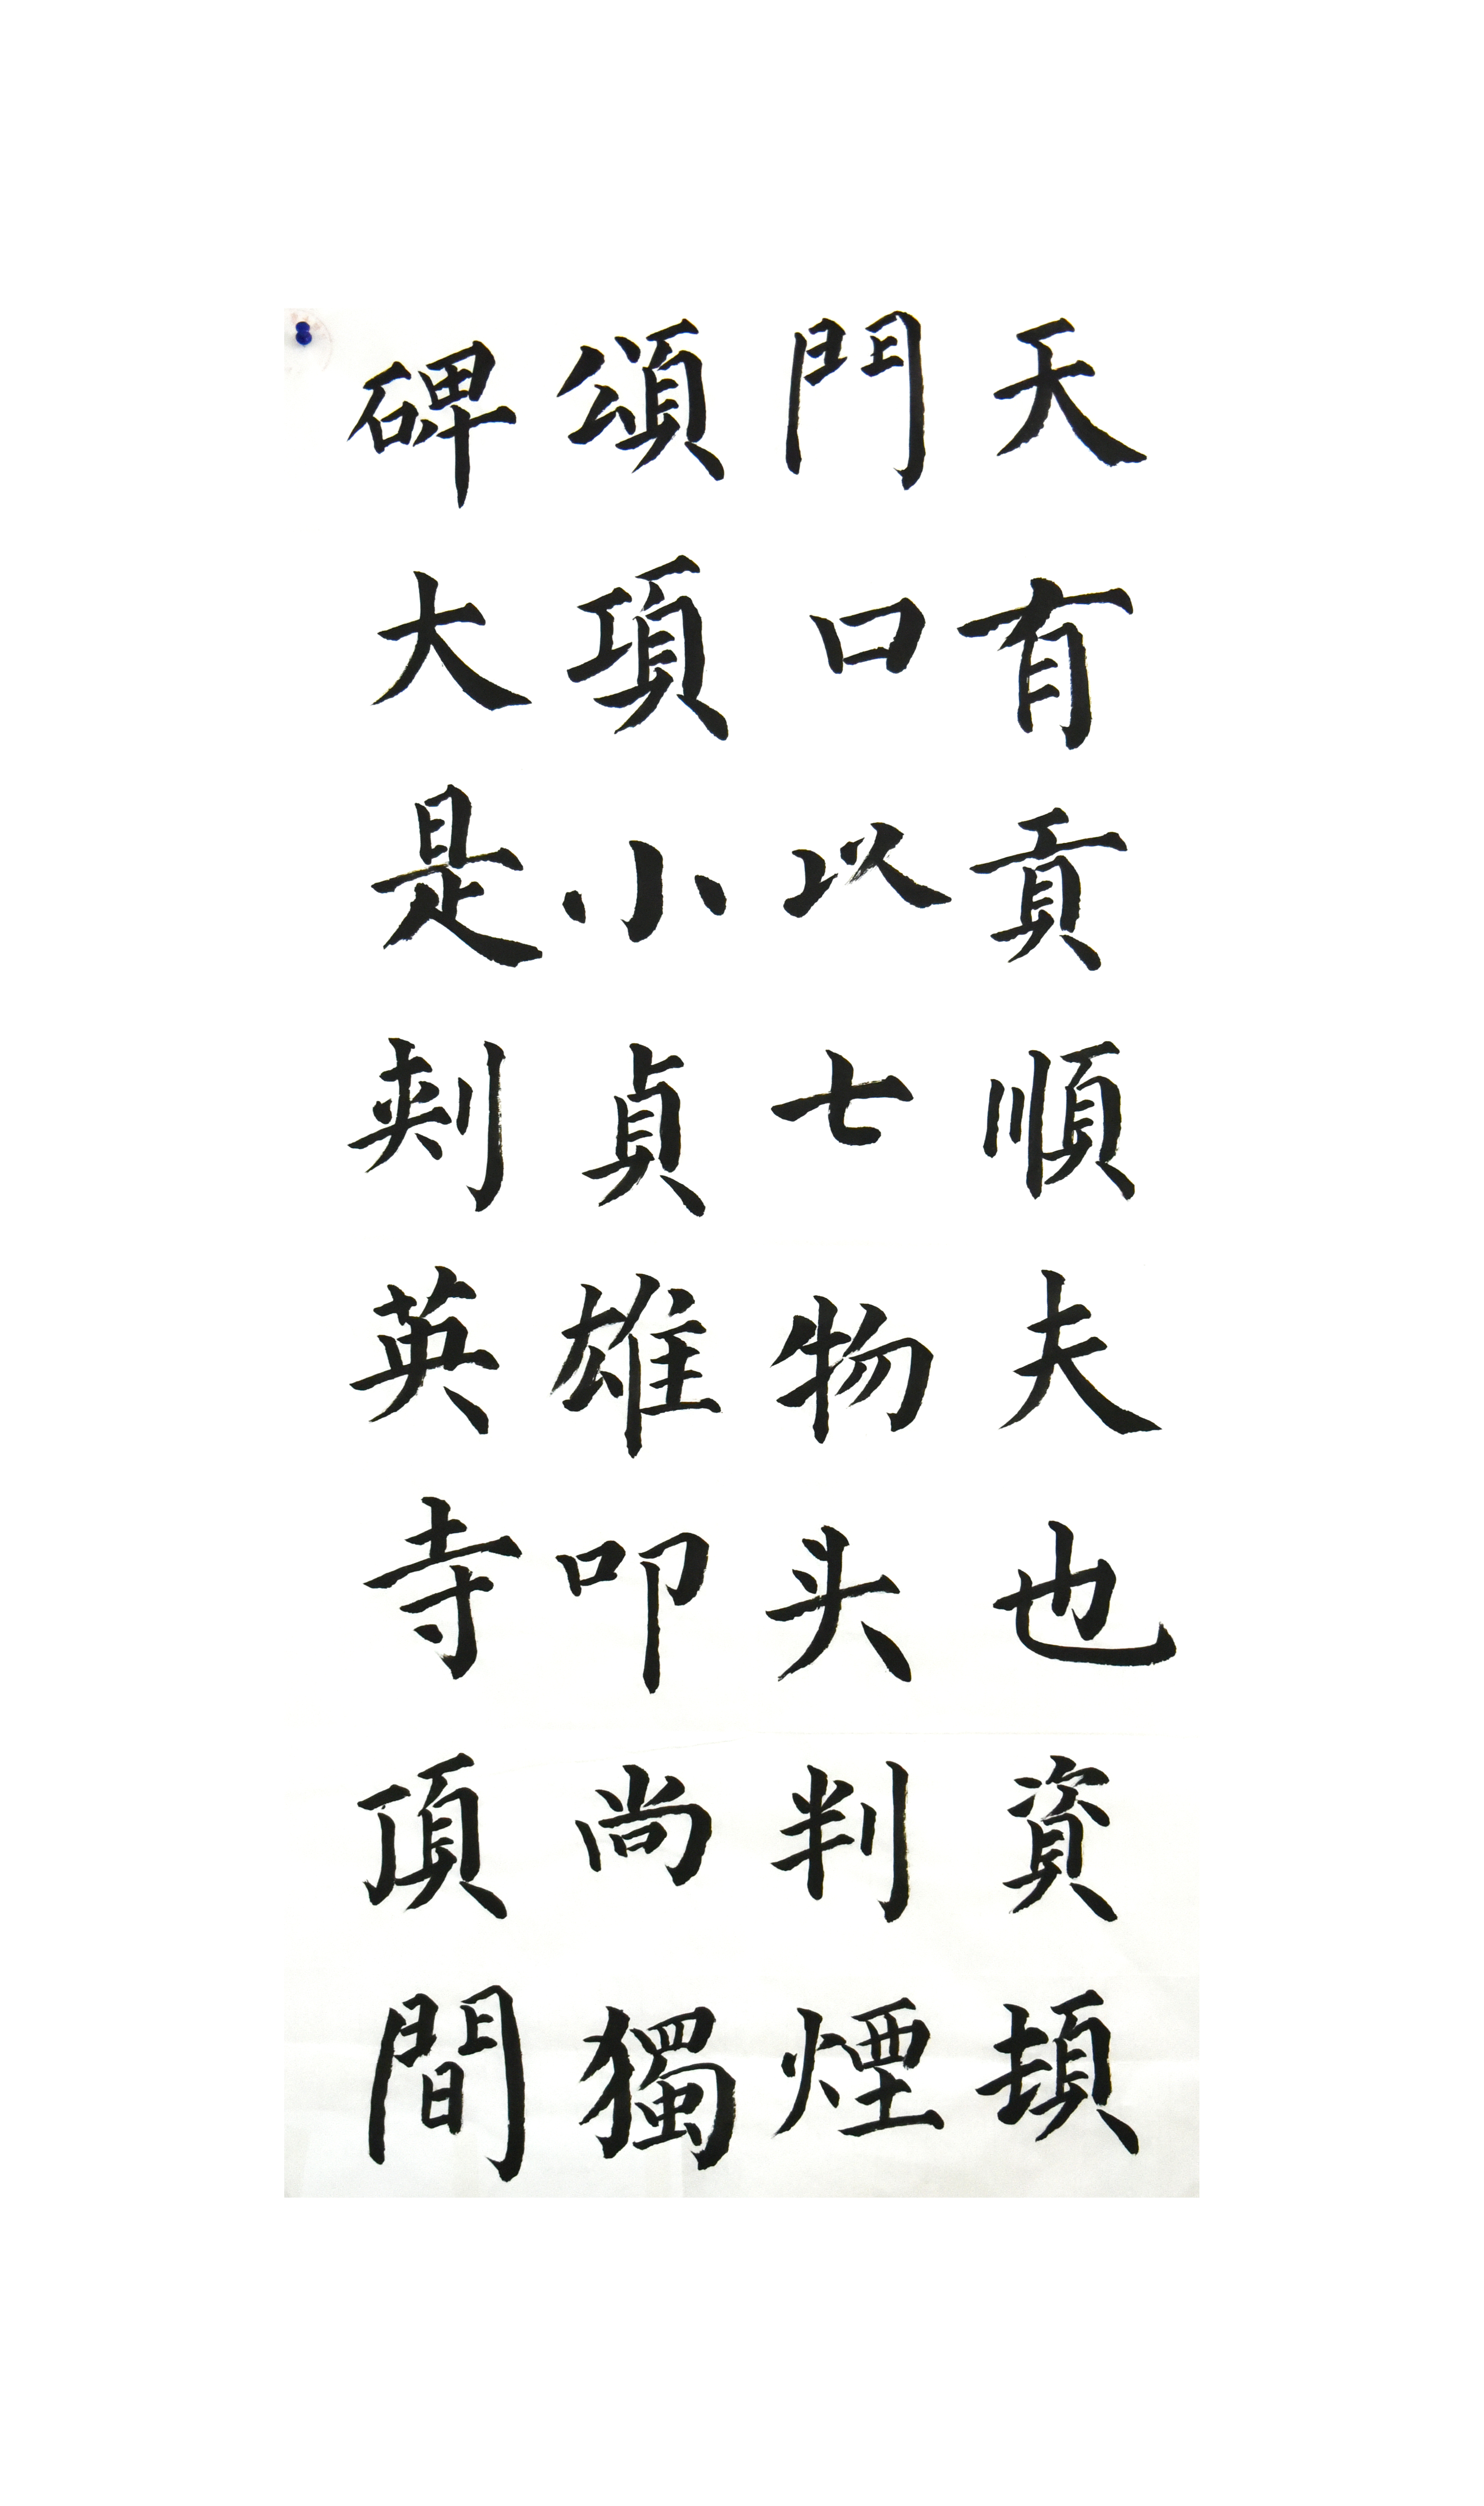 天有貢順夫也資頓
門口以七物头判煙
頌項小貞雄叩尚獨
碑大是刺英寺頂間